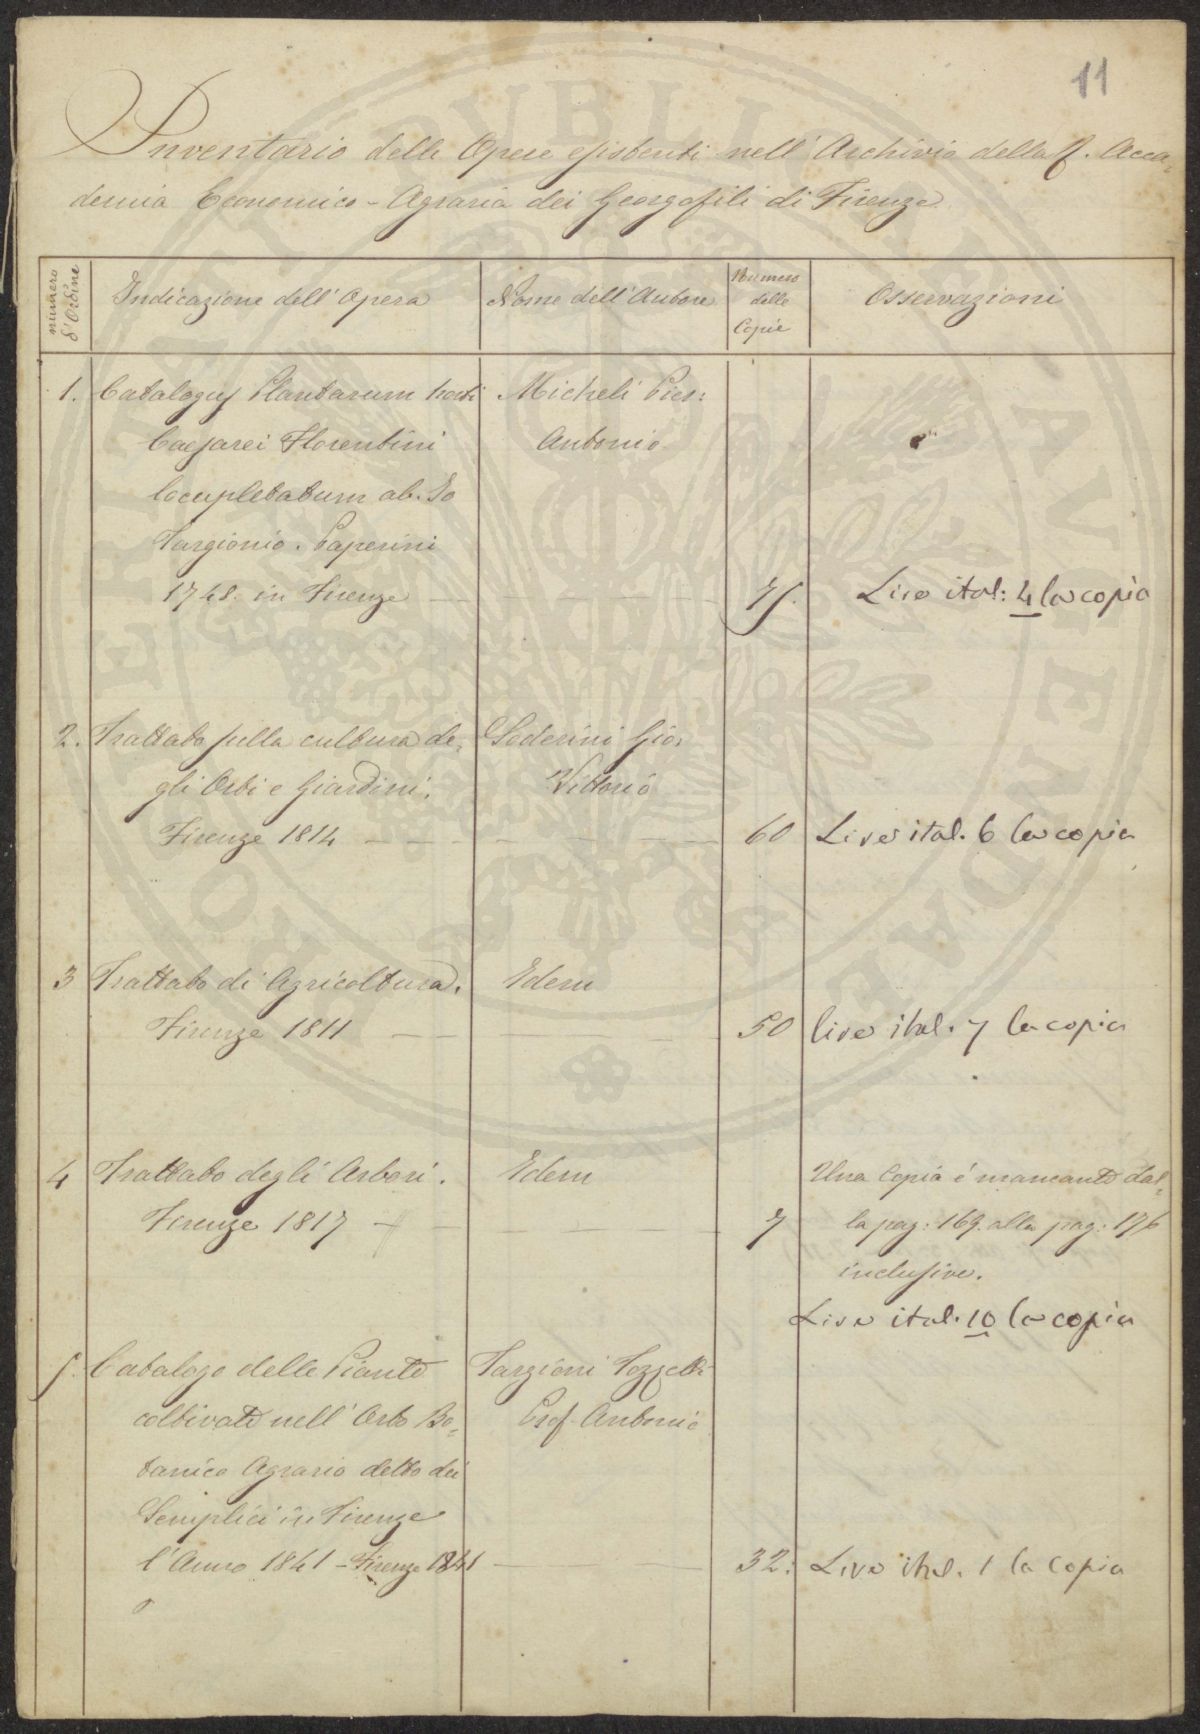 11
Inventario delle Opere esistenti nell'Archivio della R. Acca=
demia Economico-Agraria dei Georgofili di Firenze
numero d'Ordine
Indicazione dell'Opera
Nome dell'Autore
Numero delle Copie
Osservazioni
1. Catalogus Plantarum horti Micheli Pier:
Caesarei Florentini Antonio
locupletatum ab. Io
Targionio. Paperini
1748. in Firenze 75. Lire ital: 4 la copia
2. Trattato sulla cultura de= Soderini Gio:
gli Orti e Giardini. Vittorio
Firenze 1814 60 Lire ital. 6 la copia
3 Trattato di Agricoltura. Idem
Firenze 1811 50 lire ital. 7 la copia
4 Trattato degli Arbori. Idem Una Copia é mancante dal=
Firenze 1817 7 la pag: 169. alla pag: 176
inclusive.
Lire ital. 10 la copia
5. Catalogo delle Piante Targioni Tozzetti
coltivate nell'Orto Bo= Prof. Antonio
tanico Agrario detto dei
Semplici in Firenze
l'Anno 1841 - Firenze 1841 32: Lire ital. 1 la copia